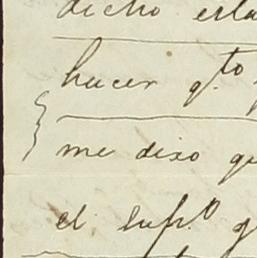 dicho esta
hacer q.to
me dixo qu
el supr.o q